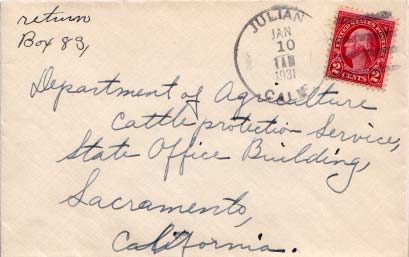 return
Box 83,
JULIAN
JAN
10
1 AM
1931
CALIF.
UNITED STATES POSTAGE
2 CENTS 2
Department of Agriculture
Cattle protection Service,
State Office Building,
Sacramento,
California.